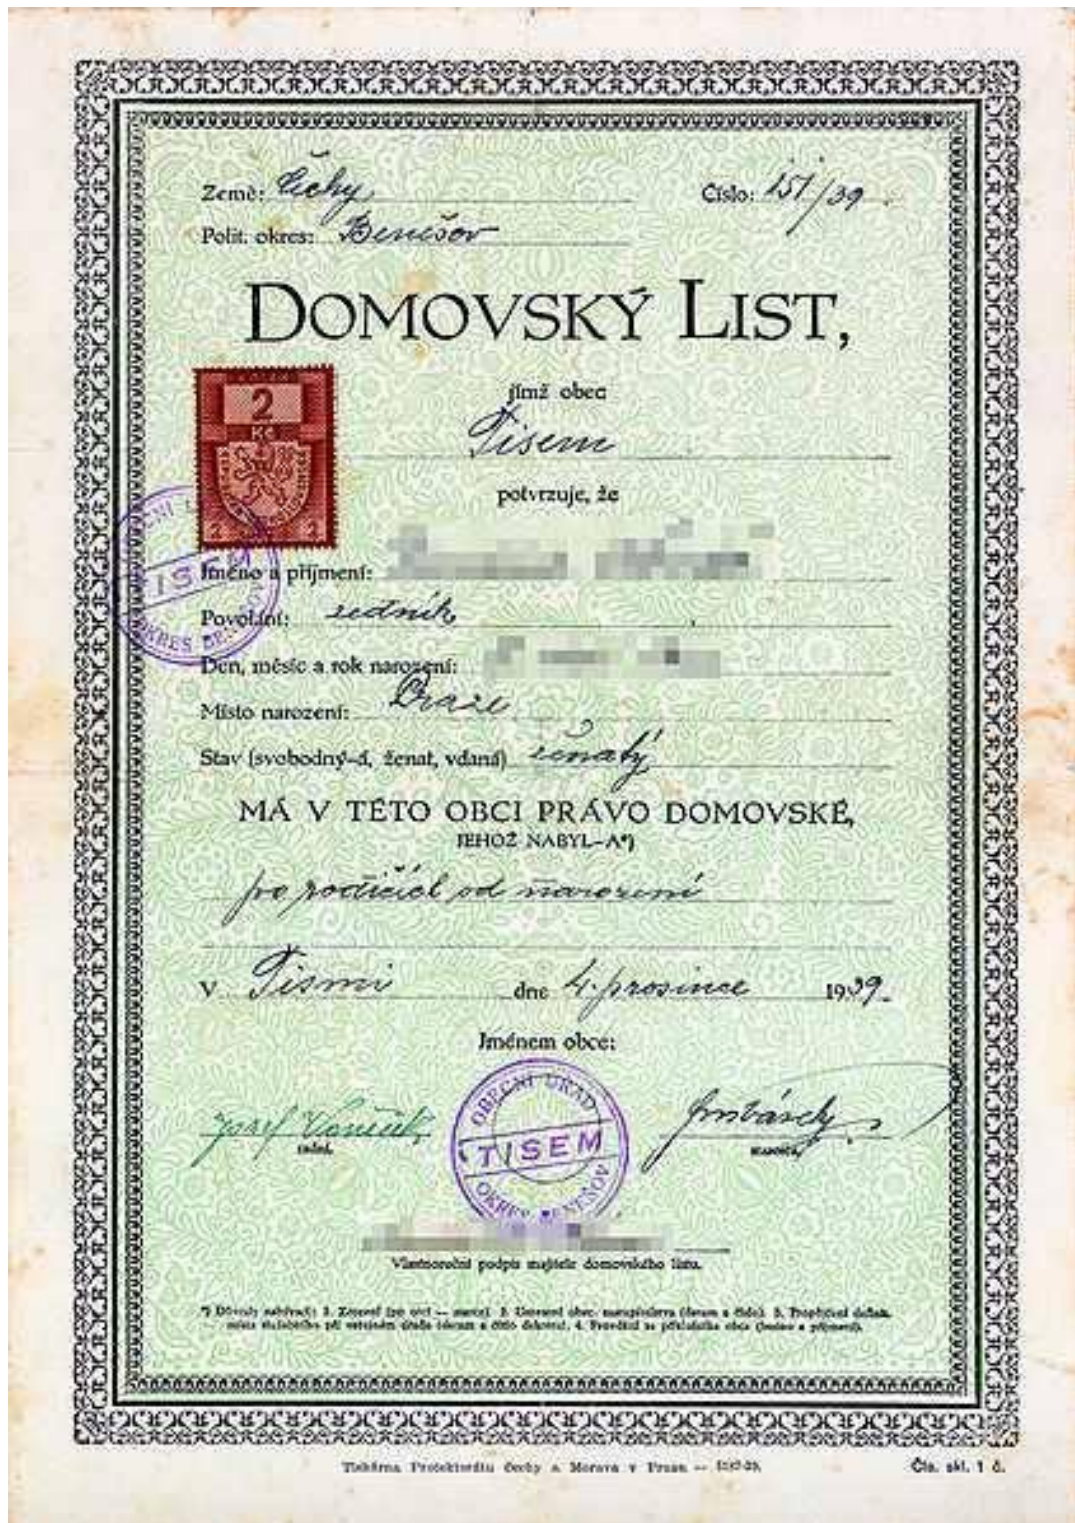 Země: Čechy Číslo: 151/39
Polit. okres: Benešov
DOMOVSKÝ LIST,
jímž obec
2
Kč
Tisem
potvrzuje, že
2 2
Jméno a příjmení:
TISEM
OKRES BENEŠOV
Povolání: ředník
Den, měsíc a rok narození:
Místo narození: Praze
Stav (svobodný-á, ženat, vdaná) ženatý
MÁ V TÉTO OBCI PRÁVO DOMOVSKÉ,
JEHOŽ NABYL-A*)
po rodičích od narození
V Tismi dne 4. prosince 1939.
Jménem obce:
OBECNÍ ÚŘAD
TISEM
OKRES BENEŠOV
Josef
radní,
starosta,
Vlastnoruční podpis majitele domovského listu.
*) Důvody nabývací: 1. Zrození (po otci — matce). 2. Usnesení obec. zastupitelstva (datum a číslo). 3. Propůjčení
při veřejném úřadu (datum a číslo dekretu). 4. Provdání za příslušníka obce (jméno a příjmení).
Tiskárna Protektorátu Čechy a Morava v Praze —
Čís. skl. 1 č.